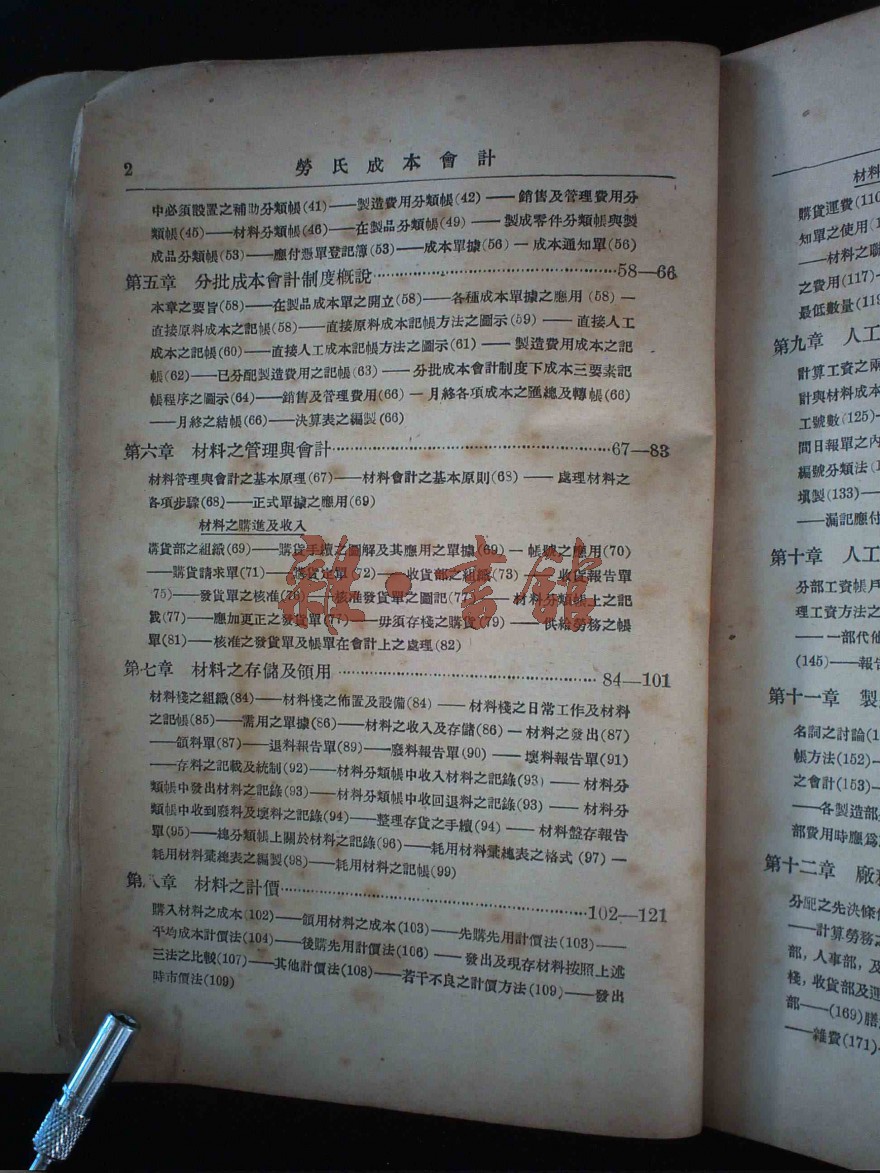 2 勞氏成本會計
中必須設置之補助分類帳(41)——製造費用分類帳(42)——銷售及管理費用分
類帳(45)——材料分類帳(46)——在製品分類帳(49)——製成零件分類帳與製
成品分類帳(53)——應付憑單登記簿(53)——成本單據(56)—成本通知單(56)
第五章 分批成本會計制度槪說……58—66
本章之要旨(58)——在製品成本單之開立(58)——各種成本單據之應用(58)—
直接原料成本之記帳(58)——直接原料成本記帳方法之圖示(59)——直接人工
成本之記帳(60)——直接人工成本記帳方法之圖示(61)——製造費用成本之記
帳(62)——已分配製造費用之記帳(63)——分批成本會計制度下成本三要素記
帳程序之圖示(64)——銷售及管理費用(66)—月終各項成本之匯總及轉帳(66)
——月終之結帳(66)——決算表之編製(66)
第六章 材料之管理與會計……67—83
材料管理與會計之基本原理(67)——材料會計之基本原則(68)——處理材料之
各項步驟(68)——正式單據之應用(69)
材料之購進及收入
購貨部之組織(69)——購貨手續之圖解及其應用之單據(69)—帳號之應用(70)
——購貨請求單(71)——購貨定單(72)——收貨部之組織(73)—收貨報告單
75)——發貨單之核准(76)——核准發貨單之圖記(77)——材料分類帳上之記
載(77)——應加更正之發貨單(77)——毋須存棧之購貨(79)——供給勞務之帳
單(81)——核准之發貨單及帳單在會計上之處理(82)
第七章 材料之存儲及領用……84—101
材料棧之組織(84)——材料棧之佈置及設備(84)——材料棧之日常工作及材料
之記帳(85)——需用之單據(86)——材料之收入及存儲(86)—材料之發出(87)
——領料單(87)——退料報告單(89)——廢料報告單(90)——壞料報告單(91)
——存料之記載及統制(92)——材料分類帳中收入材料之記錄(93)——材料分
類帳中發出材料之記錄(93)——材料分類帳中收回退料之記錄(93)——材料分
類帳中收到廢料及壞料之記錄(94)——整理存貨之手續(94)——材料盤存報告
單(95)——總分類帳上關於材料之記錄(96)——耗用材料彙總表之格式(97)—
耗用材料彙總表之編製(98)——耗用材料之記帳(99)
第八章 材料之計價……102—121
購入材料之成本(102)——領用材料之成本(103)——先購先用計價法(103)——
平均成本計價法(104)——後購先用計價法(106)——發出及現存材料按照上述
三法之比較(107)——其他計價法(108)——若干不良之計價方法(109)——發出
時市價法(109)
材料
購貨運費(110
知單之使用(1
——材料之
之費用(117)—
最低數量(119
第九章 人工
計算工資之兩
計與材料成本
工號數(125)—
間日報單之內
編號分類法(1
填製(133)——
——漏記應付
第十章 人工
分部工資帳戶
理工資方法之
——一部代他
(145)——報告
第十一章 製
名詞之討論(1
帳方法(152)—
之會計(153)—
——各製造部
部費用時應爲
第十二章 廠
分配之先決條件
——計算勞務
部,人事部,及
棧,收貨部及運
部——(169)膳
——雜費(171)